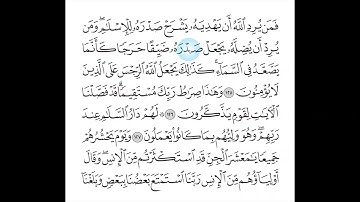 فَمَن يُرِدِ ٱللَّهُ أَن يَهْدِيَهُۥ يَشْرَحْ صَدْرَهُۥ لِلْإِسْلَٰمِ ۖ وَمَن
يُرِدْ أَن يُضِلَّهُۥ يَجْعَلْ صَدْرَهُۥ ضَيِّقًا حَرَجًا كَأَنَّمَا
يَصَّعَّدُ فِى ٱلسَّمَآءِ ۚ كَذَٰلِكَ يَجْعَلُ ٱللَّهُ ٱلرِّجْسَ عَلَى ٱلَّذِينَ
لَا يُؤْمِنُونَ ١٢٥ وَهَٰذَا صِرَٰطُ رَبِّكَ مُسْتَقِيمًا ۗ قَدْ فَصَّلْنَا
ٱلْءَايَٰتِ لِقَوْمٍ يَذَّكَّرُونَ ١٢٦ لَهُمْ دَارُ ٱلسَّلَٰمِ عِندَ
رَبِّهِمْ ۖ وَهُوَ وَلِيُّهُم بِمَا كَانُوا۟ يَعْمَلُونَ ١٢٧ وَيَوْمَ يَحْشُرُهُمْ
جَمِيعًا يَٰمَعْشَرَ ٱلْجِنِّ قَدِ ٱسْتَكْثَرْتُم مِّنَ ٱلْإِنسِ ۖ وَقَالَ
أَوْلِيَآؤُهُم مِّنَ ٱلْإِنسِ رَبَّنَا ٱسْتَمْتَعَ بَعْضُنَا بِبَعْضٍ وَبَلَغْنَآ